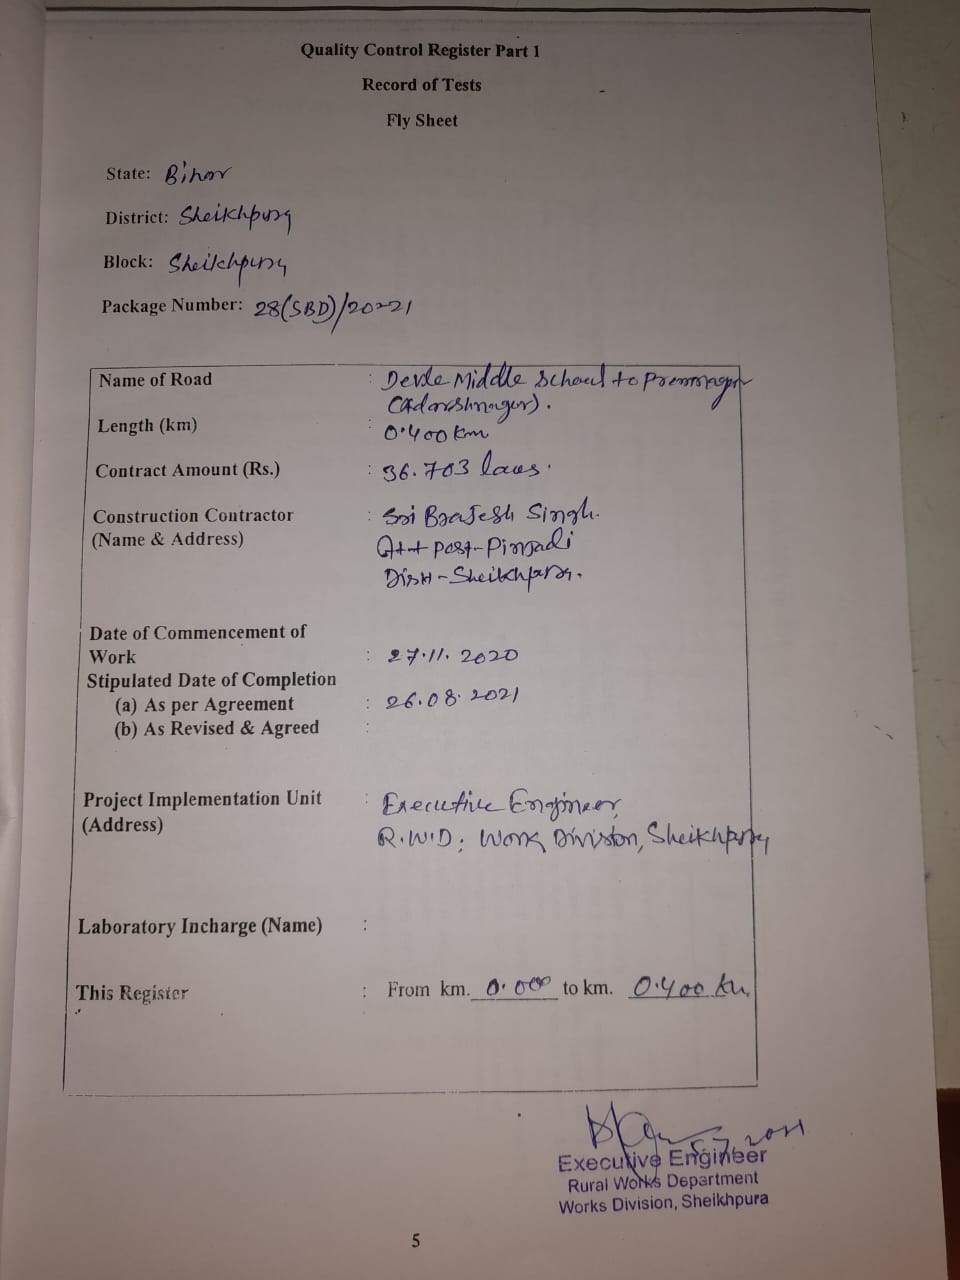 Quality Control Register Part 1
Record of Tests
Fly Sheet
State: Bihar
District: Sheikhpura
Block: Sheikhpura
Package Number: 28(SBD)/20-21
Name of Road : Middle School to
(Adarshnagar).
Length (km) : 0.400 km
Contract Amount (Rs.) : 36.703 lacs.
Construction Contractor : Sri Brajesh Singh.
(Name & Address) At + Post-Pinjadi
Dist-Sheikhpura.
Date of Commencement of
Work : 27.11.2020
Stipulated Date of Completion
(a) As per Agreement : 26.08.2021
(b) As Revised & Agreed :
Project Implementation Unit : Executive Engineer,
(Address) R.W.D. Work Division, Sheikhpura
Laboratory Incharge (Name) :
This Register : From km. 0.000 to km. 0.400 Km.
Executive Engineer
Rural Works Department
Works Division, Sheikhpura
5